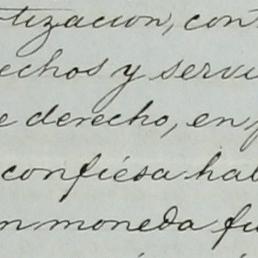 tización, con
echos y servi
e derecho, en
confiesa hab
n moneda fu